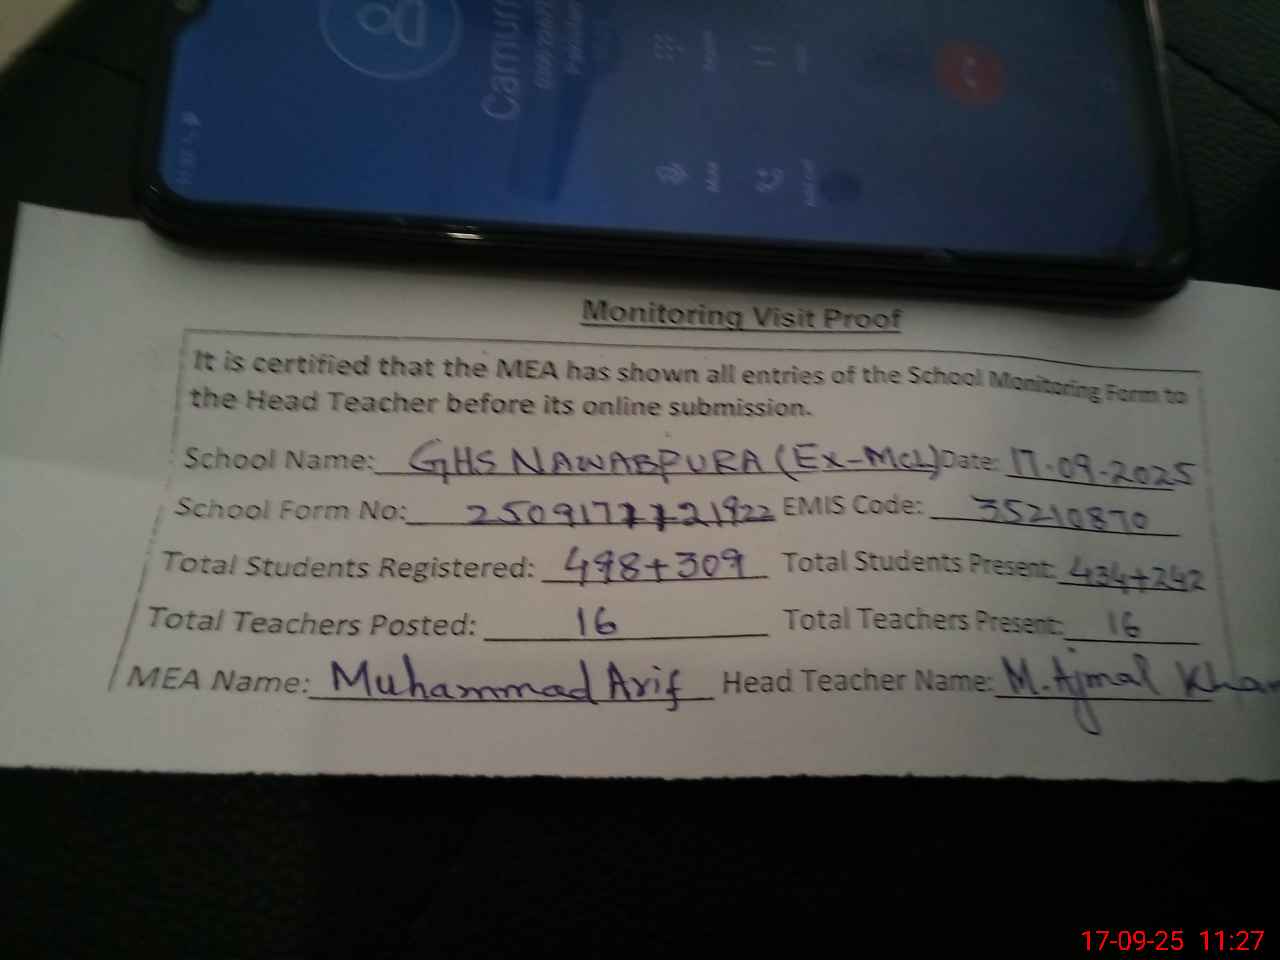 Camur
Monitoring Visit Proof
It is certified that the MEA has shown all entries of the School Monitoring Form to
the Head Teacher before its online submission.
School Name: GHS NAWABPURA (Ex-MCL) Date: 17-09-2025
School Form No: EMIS Code: 35210870
Total Students Registered: 498+309 Total Students Present: 434+242
Total Teachers Posted: 16 Total Teachers Present: 16
MEA Name: Muhammad Arif Head Teacher Name: M. Ajmal Khan
17-09-25 11:27